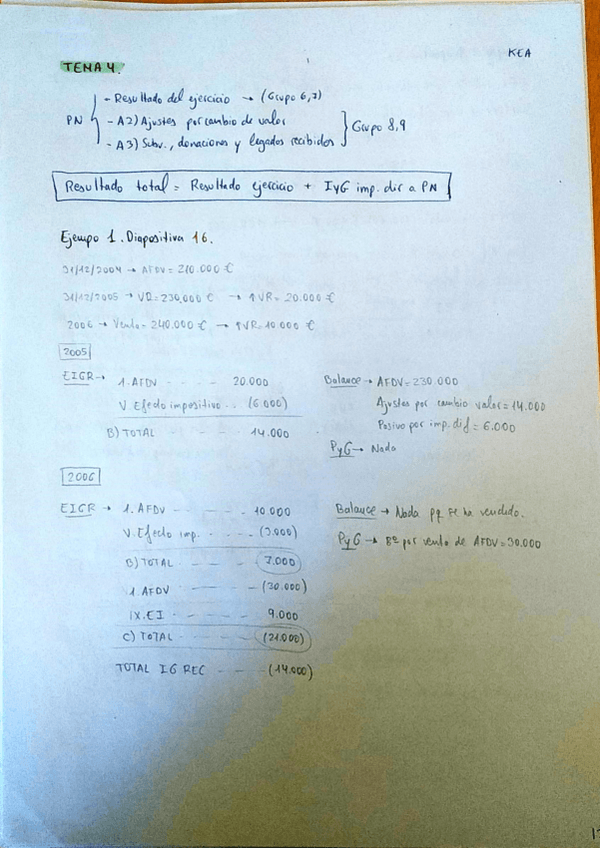 KEA
TEMA 4.
PN
- Resultado del ejercicio → (Grupo 6,7)
- A2) Ajustes por cambio de valor
- A3) Subv., donaciones y legados recibidos
Grupo 8,9
Resultado total = Resultado ejercicio + IyG imp. dir a PN
Ejempo 1. Diapositiva 16.
31/12/2004 → AFDV = 210.000 €
31/12/2005 → VR = 230.000 € → ↑VR = 20.000 €
2006 → Venta = 240.000 € → ↑VR = 10.000 €
2005
EIGR → 1. AFDV - - - - 20.000
V. Efecto impositivo .. (6.000)
B) TOTAL - - - - 14.000
Balance → AFDV = 230.000
Ajustes por cambio valor = 14.000
Pasivo por imp. dif = 6.000
PyG → Nada
2006
EIGR → 1. AFDV - - - - 10.000
V. Efecto imp. - - - (3.000)
B) TOTAL - - - - 7.000
1. AFDV - - - - (30.000)
IX. EI - - - - 9.000
C) TOTAL - - - - (21.000)
TOTAL IG REC - - - (14.000)
Balance → Nada pq se ha vendido.
PyG → Bº por venta de AFDV = 30.000